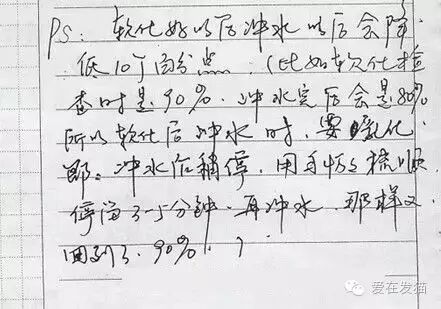 PS: 软化好以后冲水以后会降
低10个百分点 (比如软化检
查时是90%. 冲水完后会是80%
所以软化后冲水时,要乳化
即:冲水后稍停,用手指梳顺
停留3-5分钟.再冲水 那样又
回到了.90%.)
爱在发猫